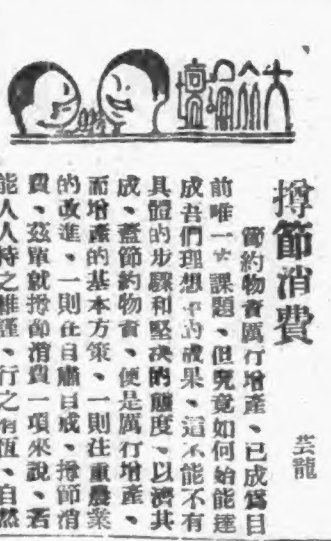 大众論壇
撙節消費
芸龍
節約物資厲行增產、已成為目
前唯一大課題、但究竟如何始能達
成吾們理想中的成果、這不能不有
具體的步驟和堅决的態度、以濟其
成、蓋節約物資、便是厲行增產、
而增產的基本方策、一則在重農業
的改進、一則在自肅自戒、撙節消
費、茲單就撙節消費一項來說、若
能人人持之維謹、行之有恆、自然